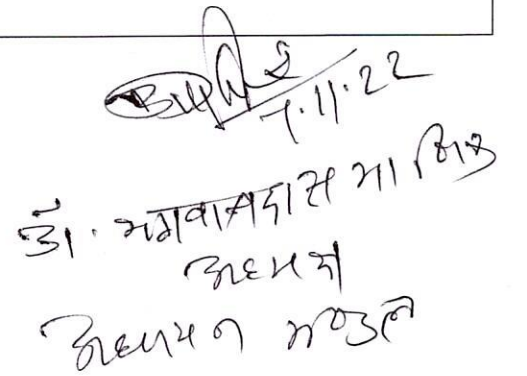 7.11.22
डॉ. भगवानदास
अध्यक्ष
अध्ययन मण्डल